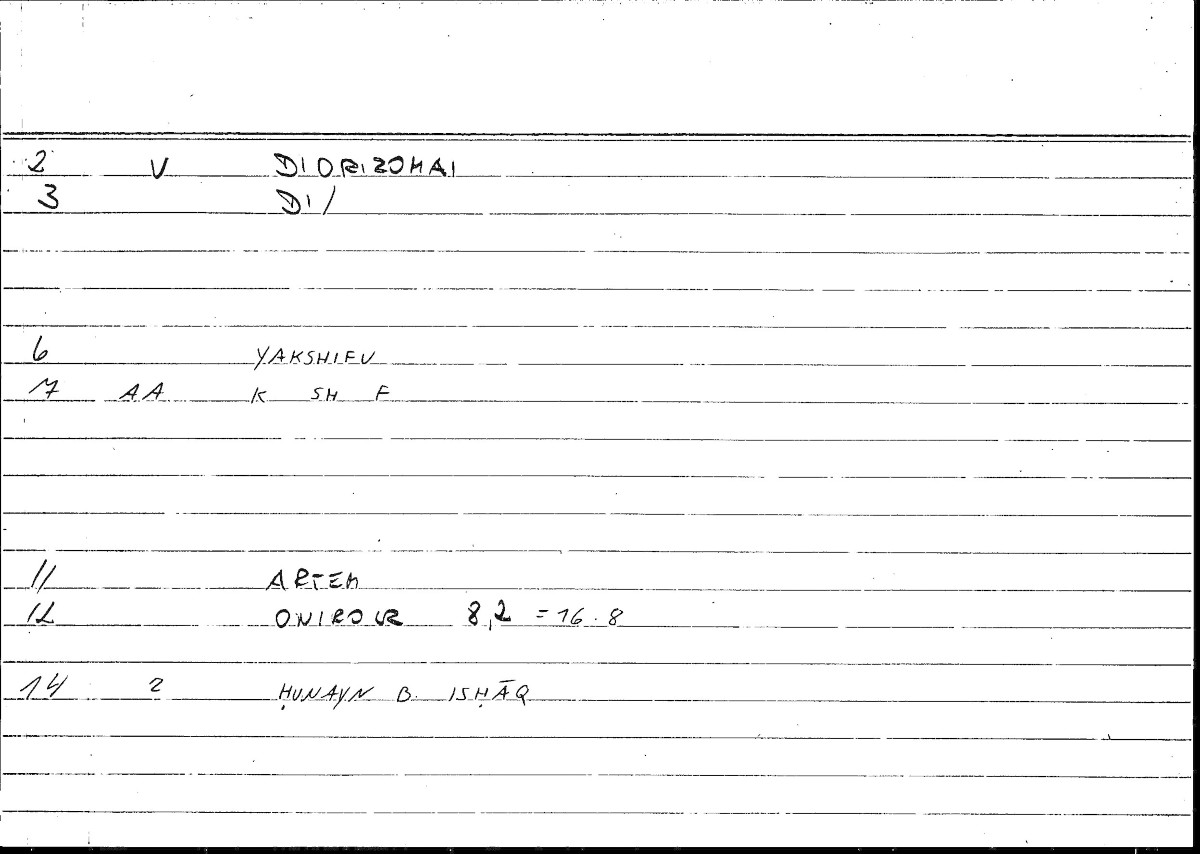 2 V DIORIZOMAI
3 DI/
6 YAKSHIFU
7 AA K SH F
11 ARTEM
12 ONIROCR 8,2 = 16.8
14 2 ḤUNAYN B. ISḤĀQ